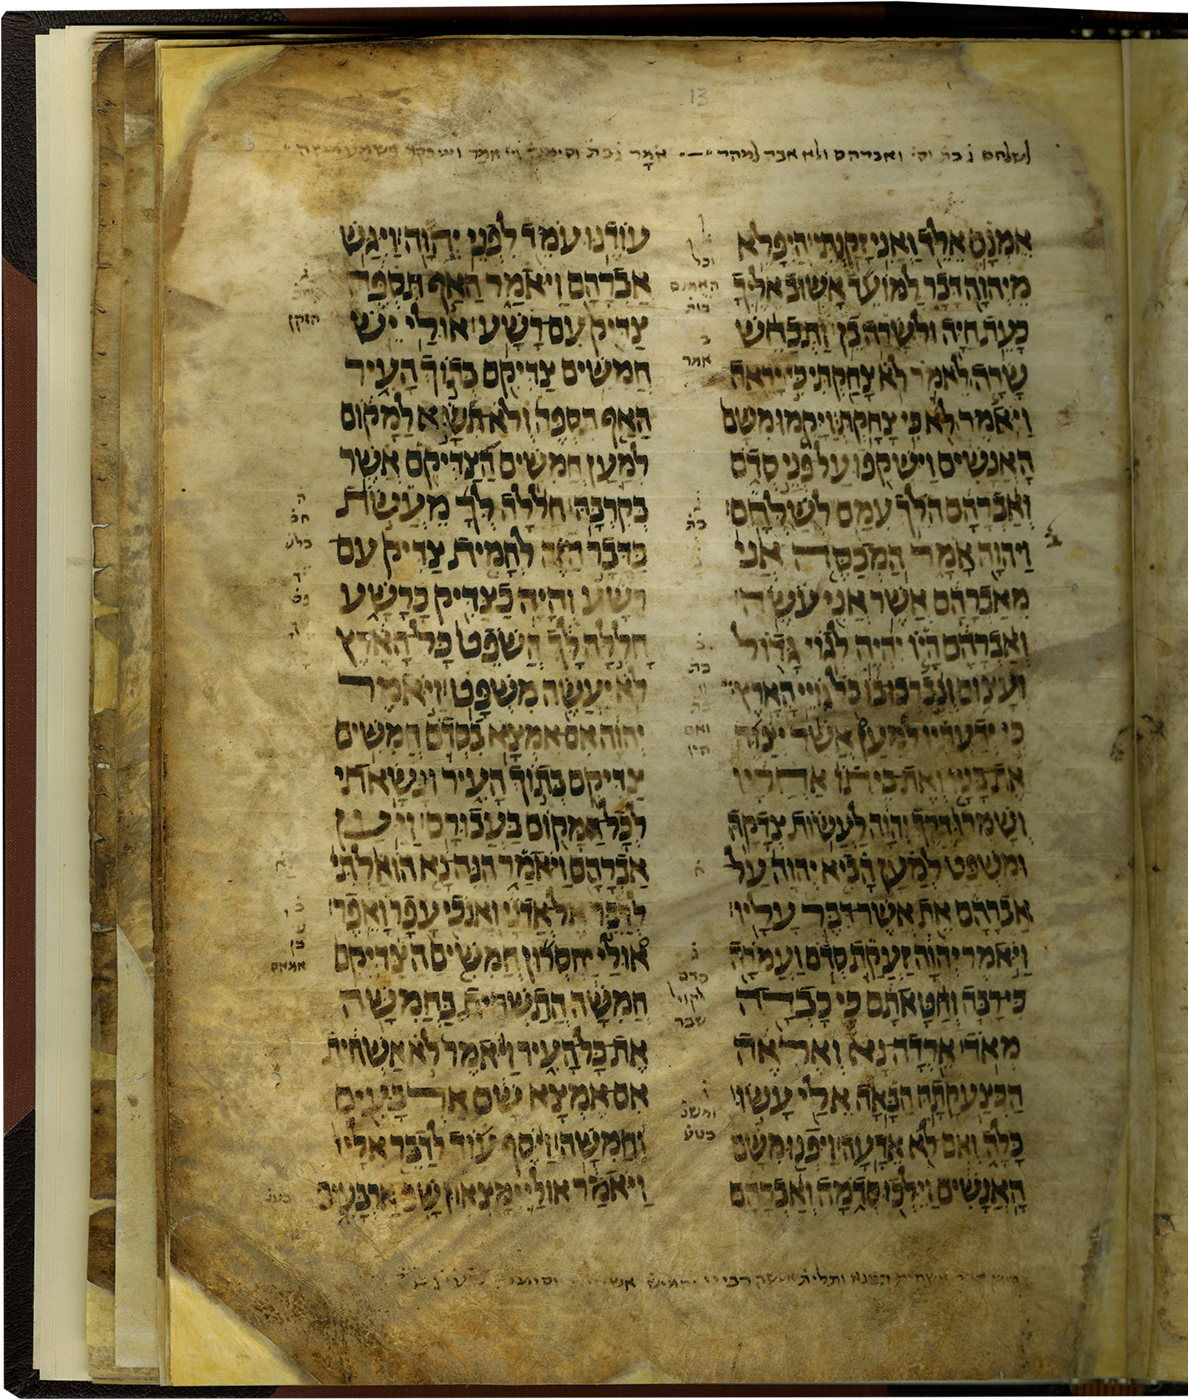 לשלחם ואברהם ולא אבד
אמנם אלד ואני זקנתי היפלא
מיהוה דבר למועד אשוב אליך
כעת חיה ולשרה בן ותכחש
שרה לאמר לא צחקתי כי יראה
ויאמר לא כי צחקת ויקמו משם
האנשים וישקפו על פני סדם
ואברהם הלך עמם לשלחם
ויהוה אמר המכסה אני
מאברהם אשר אני עשה
ואברהם היו יהיה לגוי גדול
ועצום ונברכו בו כל גויי הארץ
כי ידעתיו למען אשר יצוה
את בניו ואת ביתו אחריו
ושמרו דרך יהוה לעשות צדקה
ומשפט למען הביא יהוה על
אברהם את אשר דבר עליו
ויאמר יהוה זעקת סדם ועמרה
כי רבה וחטאתם כי כבדה
מאד ארדה נא ואראה
הכצעקתה הבאה אלי עשו
כלה ואם לא אדעה ויפנו משם
האנשים וילכו סדמה ואברהם
עודנו עמד לפני יהוה ויגש
אברהם ויאמר האף תספה
צדיק עם רשע אולי יש
חמשים צדיקם בתוך העיר
האף תספה ולא תשא למקום
למען חמשים הצדיקם אשר
בקרבה חללה לך מעשת
כדבר הזה להמית צדיק עם
רשע והיה כצדיק כרשע
חללה לך השפט כל הארץ
לא יעשה משפט ויאמר
יהוה אם אמצא בסדם חמשים
צדיקם בתוך העיר ונשאתי
לכל המקום בעבורם ויען
אברהם ויאמר הנה נא הואלתי
לדבר אל אדני ואנכי עפר ואפר
אולי יחסרון חמשים הצדיקם
חמשה התשחית בחמשה
את כל העיר ויאמר לא אשחית
אם אמצא שם ארבעים
וחמשה ויסף עוד לדבר אליו
ויאמר אולי ימצאון שם ארבעים